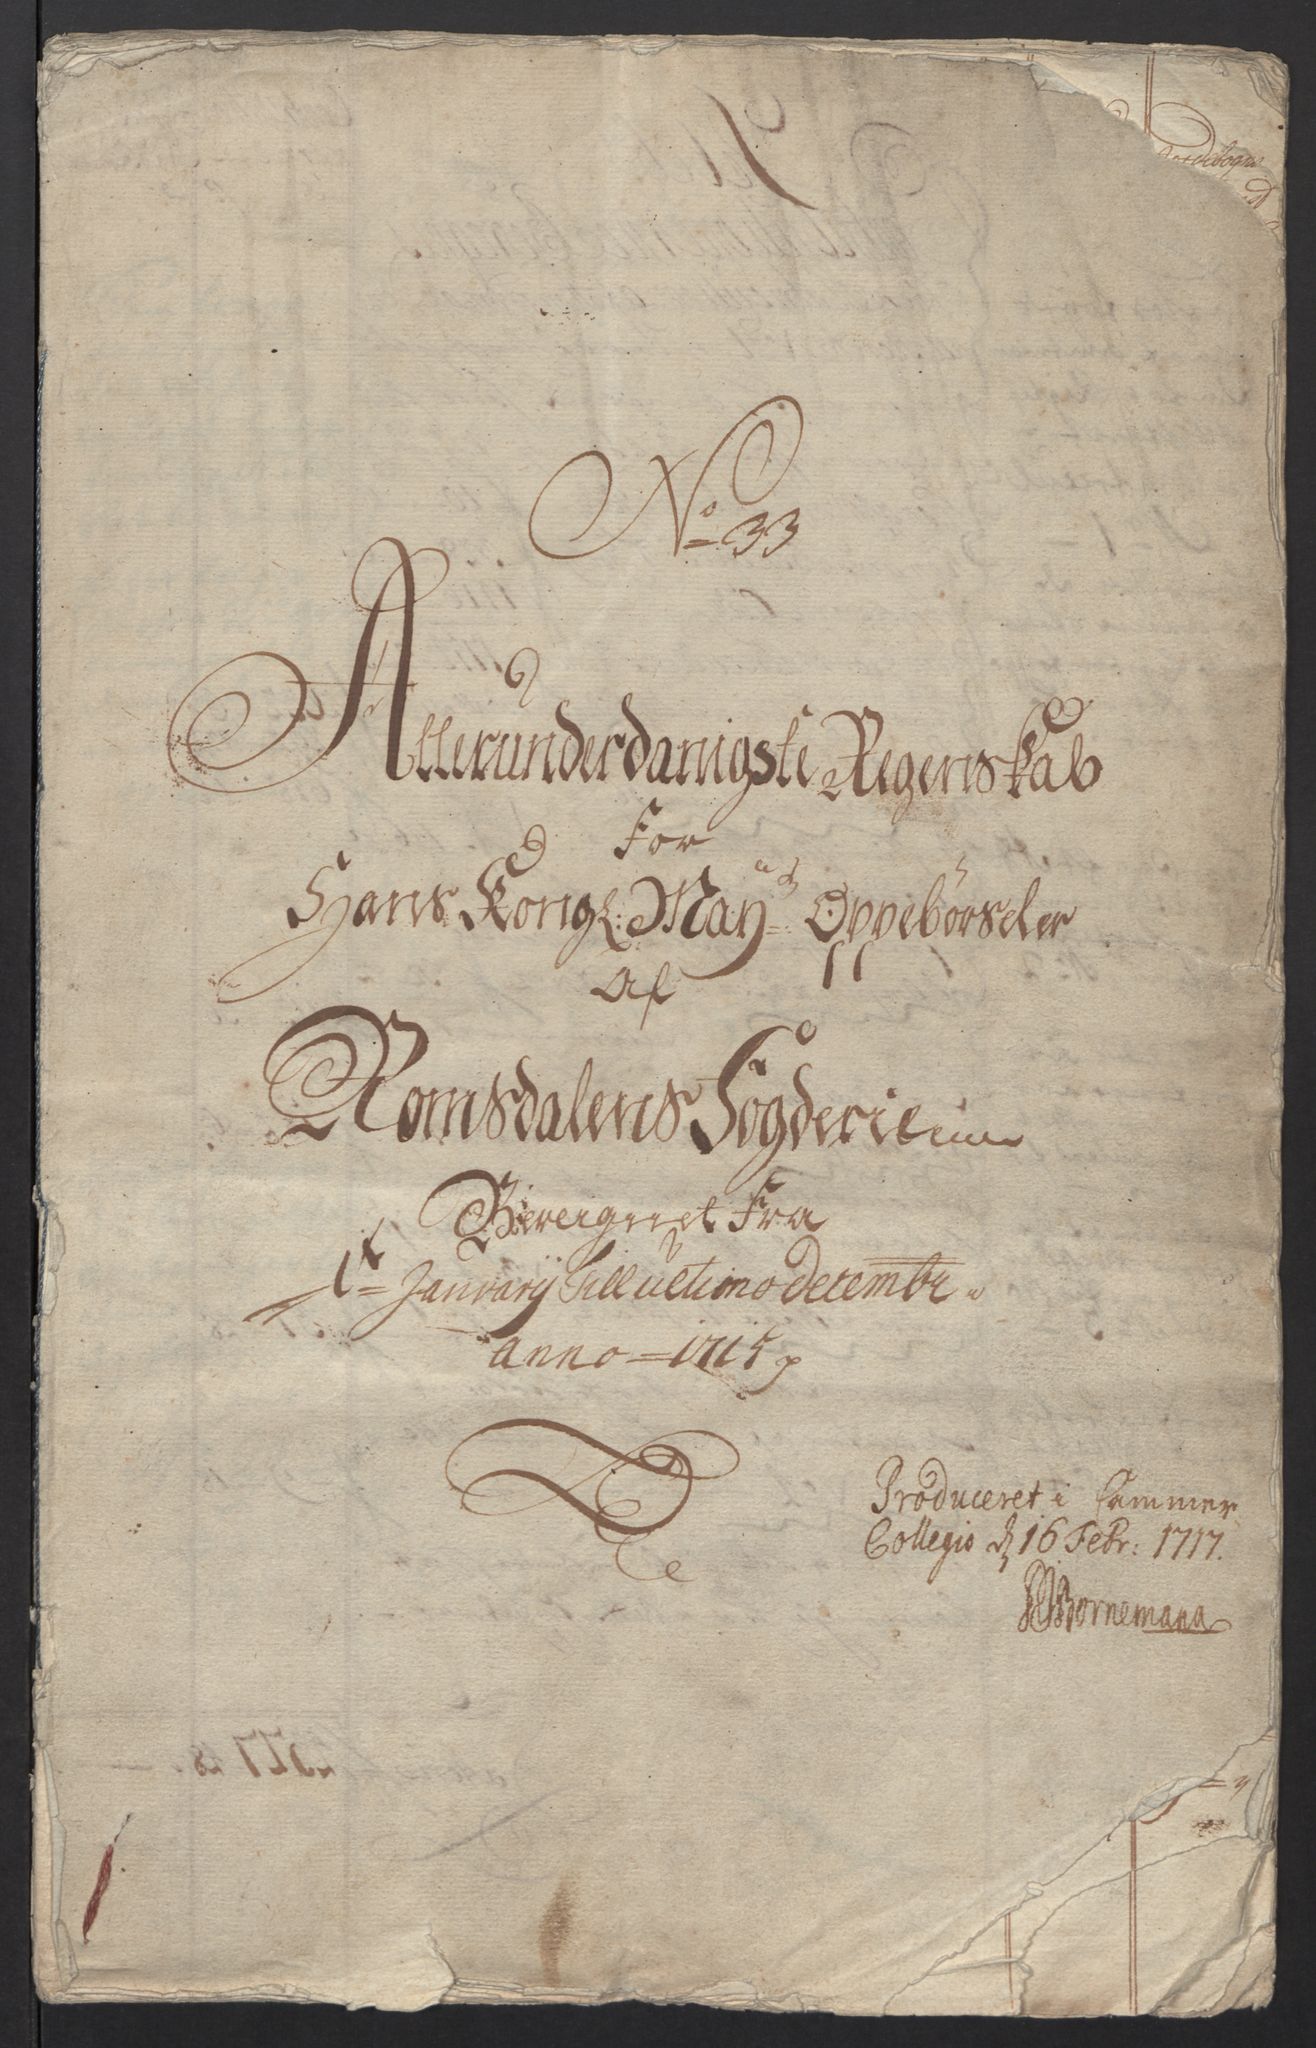 No 33
Allerunderdanigste Regenskab
For
Hans Kongl: Mayts Oppebørseler
Af
Romsdalens Fogderie
Bereignet Fra
1t January Till ultimo decembr
anno 1715
Produceret i Cammer
Collegio d 16 Febr: 1717.
Bornemann